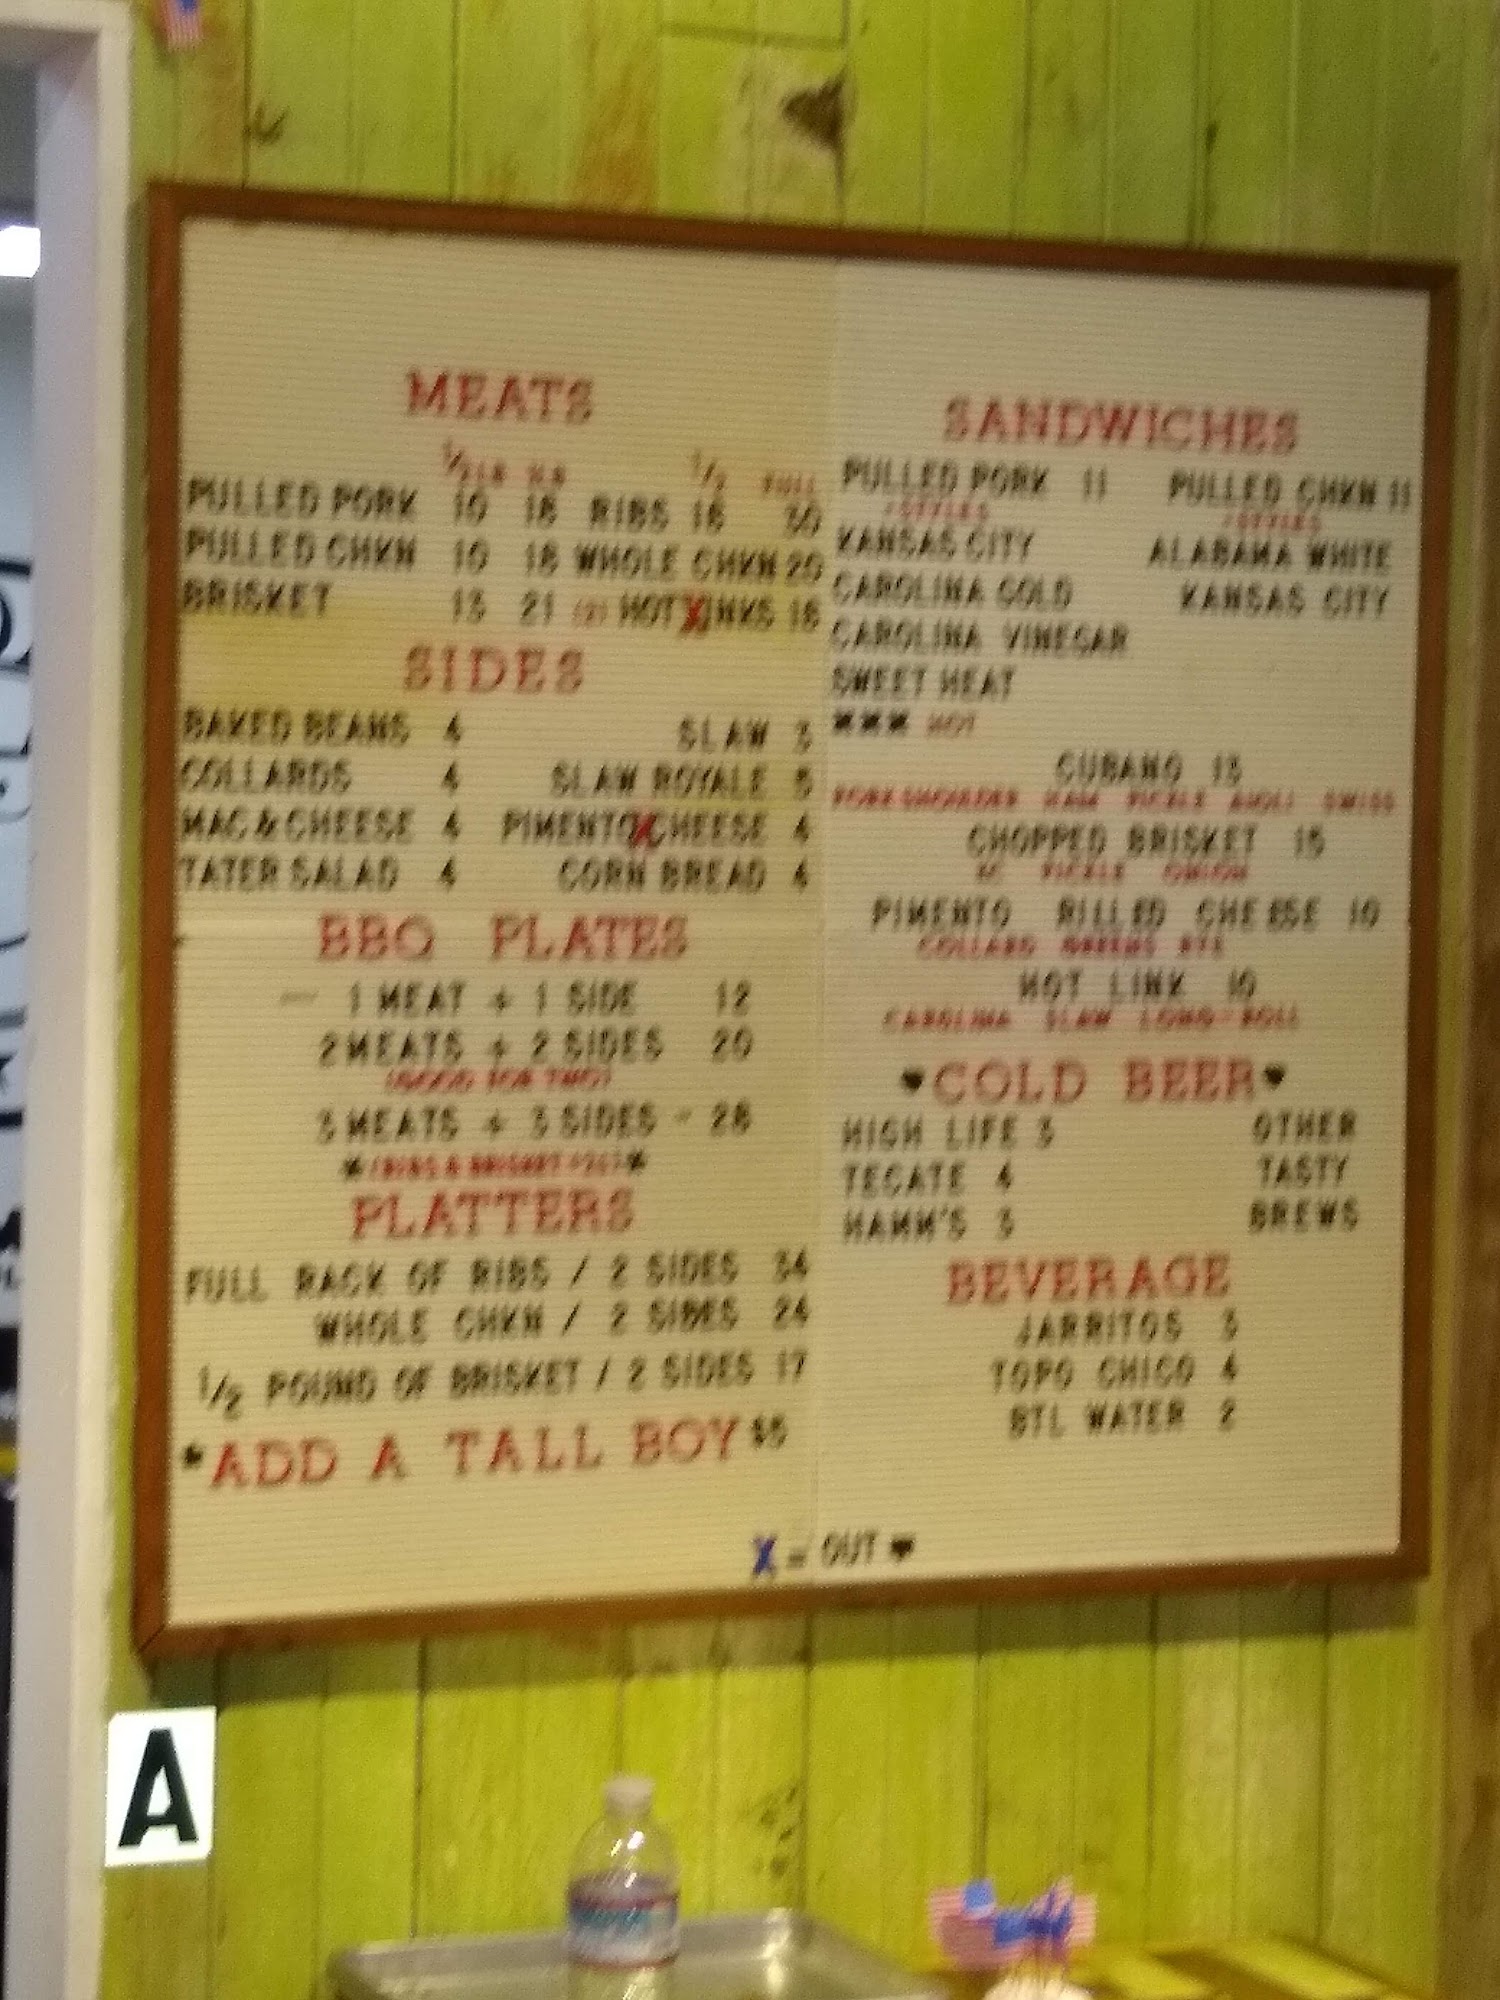 MEATS
1/2 LB LB 1/2 FULL
PULLED PORK 10 18 RIBS 16 30
PULLED CHKN 10 18 WHOLE CHKN 20
BRISKET 13 21 (2) HOT X INKS 18
SIDES
BAKED BEANS 4 SLAW 3
COLLARDS 4 SLAW ROYALE 5
MAC & CHEESE 4 PIMENTO X CHEESE 4
TATER SALAD 4 CORN BREAD 4
BBQ PLATES
1 MEAT + 1 SIDE 12
2 MEATS + 2 SIDES 20
(GOOD FOR TWO)
3 MEATS + 3 SIDES - 28
(RIBS & BRISKET
PLATTERS
FULL RACK OF RIBS / 2 SIDES 34
WHOLE CHKN / 2 SIDES 24
1/2 POUND OF BRISKET / 2 SIDES 17
*ADD A TALL BOY $5
SANDWICHES
PULLED PORK 11 PULLED CHKN 11
/STYLES /STYLES
KANSAS CITY ALABAMA WHITE
CAROLINA GOLD KANSAS CITY
CAROLINA VINEGAR
SWEET HEAT
XXX HOT
CUBANO 13
PORK SHOULDER HAM PICKLE AIOLI SWISS
CHOPPED BRISKET 15
KC PICKLE ONION
PIMENTO RILLED CHEESE 10
COLLARD GREENS RYE
HOT LINK 10
CAROLINA SLAW LONG-ROLL
♥COLD BEER♥
HIGH LIFE 3 OTHER
TECATE 4 TASTY
HAMM'S 3 BREWS
BEVERAGE
JARRITOS 3
TOPO CHICO 4
BTL WATER 2
X = OUT ♥
A